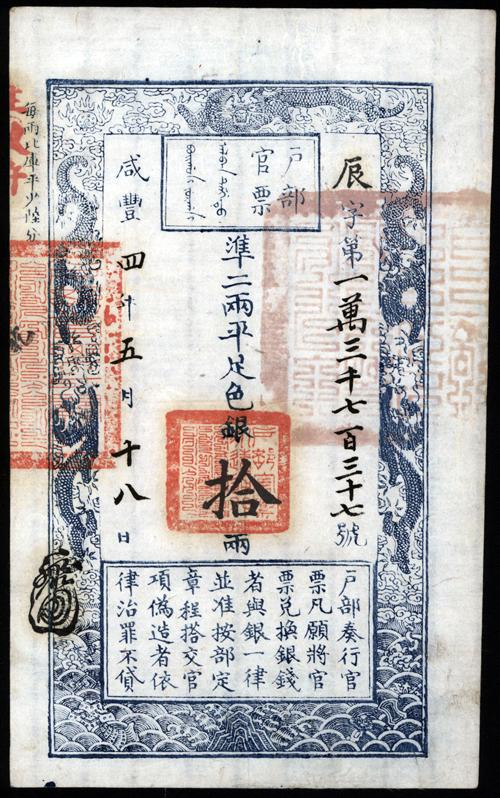 辰字第一萬三千七百三十七號
戶部
官票
準二兩平足色銀拾兩
咸豐四年五月十八日
戶部奏行官
票凡願將官
票兌換銀錢
者與銀一律
並准按部定
章程搭交官
項偽造者依
律治罪不貸
每兩比庫平少陸分